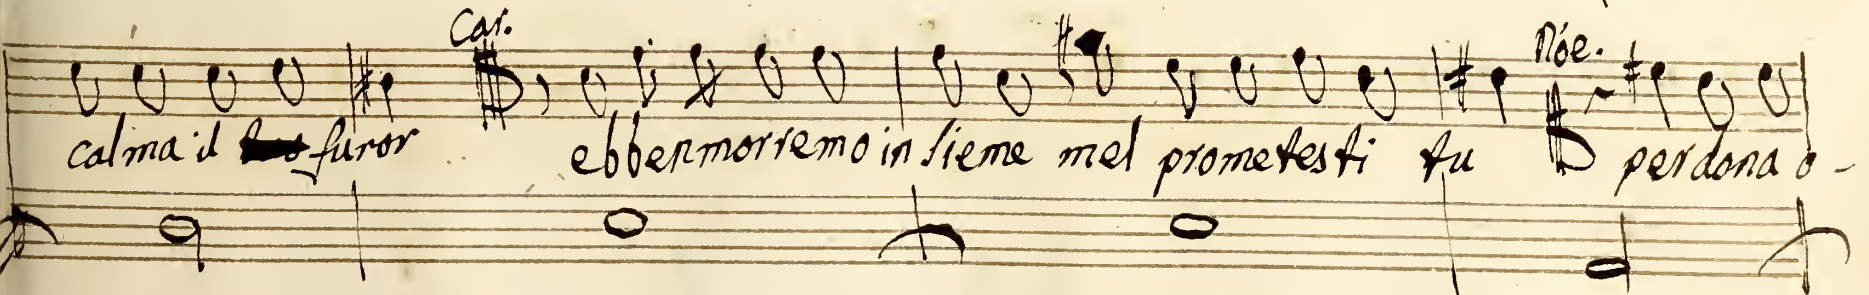 Car. Nóe.
calma il furor ebben morremo insieme mel prometesti tu perdona o-